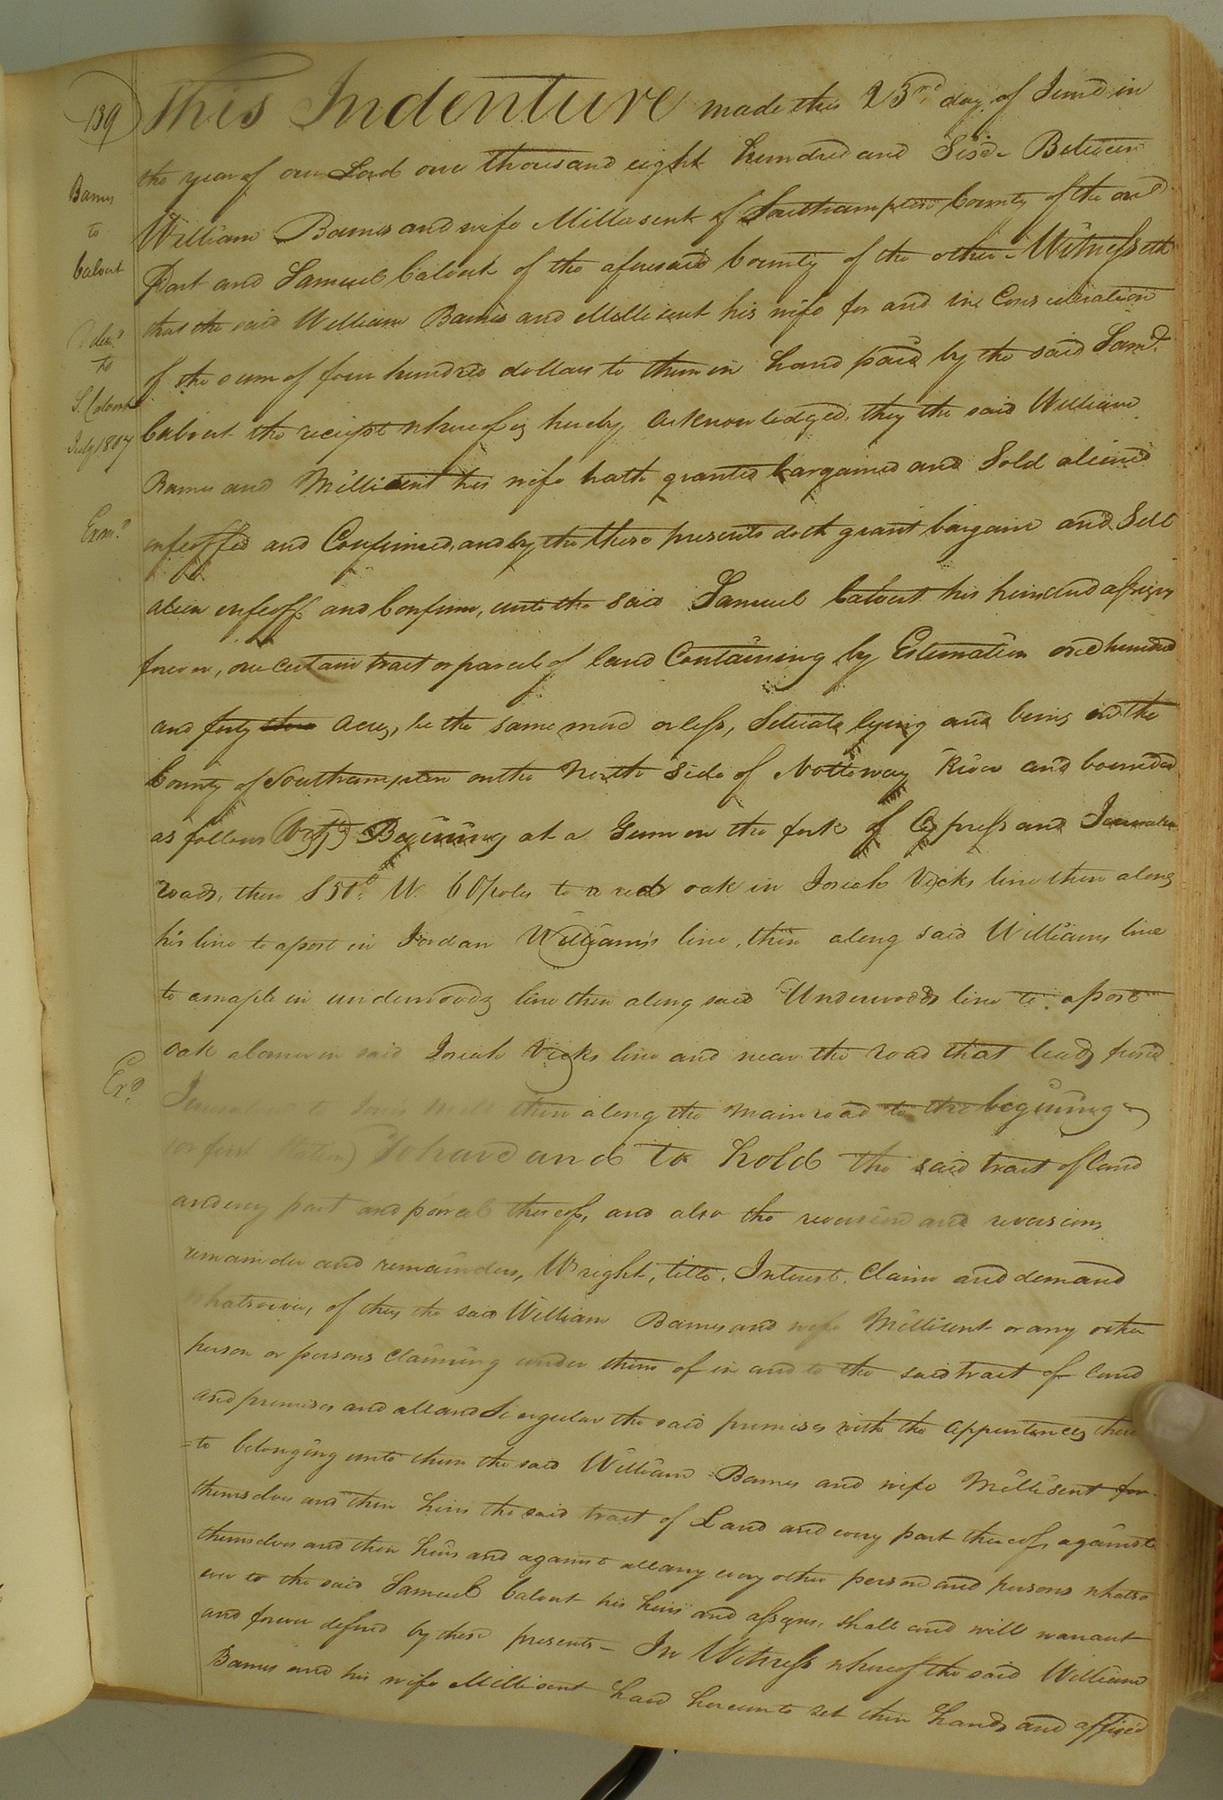 139
Barns
to
Calvert
Deld
to
S. Calvert
July 1807
Exmd
Exd
This Indenture made this 23rd day of June in
the year of our Lord one thousand eight hundred and Six Between
William Barnes and wife Millesent of Southampton County of the one
Part and Samuel Calvert of the aforesaid County of the other Witnesseth
that the said William Barnes and Millesent his wife for and in Consideration
of the sum of four hundred dollars to them in hand paid by the said Saml
Calvert the reciept whereof is hereby acknowledged, they the said William
Barnes and Millicent his wife hath granted bargained and Sold aliened
enfeoffed and Confirmed, and by the these presents doth grant bargain and Sell
alien enfeoff and Confirm, unto the said Samuel Calvert his heirs and assigns
forever, one certain tract or parcel of land Containing by Estimation one hundred
and forty acres, be the same more or less, Situate lying and being in the
County of Southampton on the North Side of Nottoway River and bounded
as follows (Viz) Begining at a Gum on the fork of Cypress and Jerusalem
roads, then S 50° W. 60 poles to a red oak in Josiah Vicks line then along
his line to a post in Jordan William's line, then along said Williams line
to a maple in underwoods line then along said Underwoods line to a post
oak a corner in said Josiah Vicks line and near the road that leads from
Jerusalem to Mill then along the main road to the begining
(or first Station) To have and to hold the said tract of land
and every part and parcel thereof, and also the reversion and revisions
remainder and remainders, Wright, title, Interest, Claim and demand
whatsoever, of they the said William Barnes and wife Millisent or any other
person or persons claiming under them of in and to the said tract of land
and premises and all and Singular the said premises with the appurtences there
=to belonging unto them the said William Barnes and wife Millisent for
themselves and their heirs the said tract of Land and every part thereof, against
themselves and their heirs and against all any every other person and persons whatso
ever to the said Samuel Calvert his heirs and assigns, shall and will warrant
and forever defend by these presents – In Witness whereof the said William
Barnes and his wife Millisent have hereunto set their hands and affixed